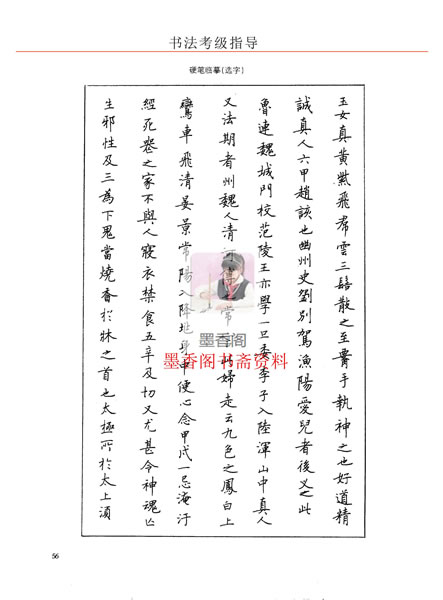 书法考级指导
硬笔临摹(选字)
玉女真黄紫飛君雲三髻散之至署手執神之也好道精
誠真人六甲趙該也幽州史劉別駕漁陽愛兒者後义之此
魯連魏城門校范陵王亦學一旦委季子入陸渾山中真人
又法期者州魏人清河常婦走云九色之鳳白上
鸞車飛清晏景常陽入降地身中便心念甲戌一忌淹汙
經死喪之家不與人寢衣禁食五辛及切又尤甚令神魂亡
生邪性及三為下鬼當燒香於牀之首也太極所於太上須
墨香阁
墨香阁书斋资料
56